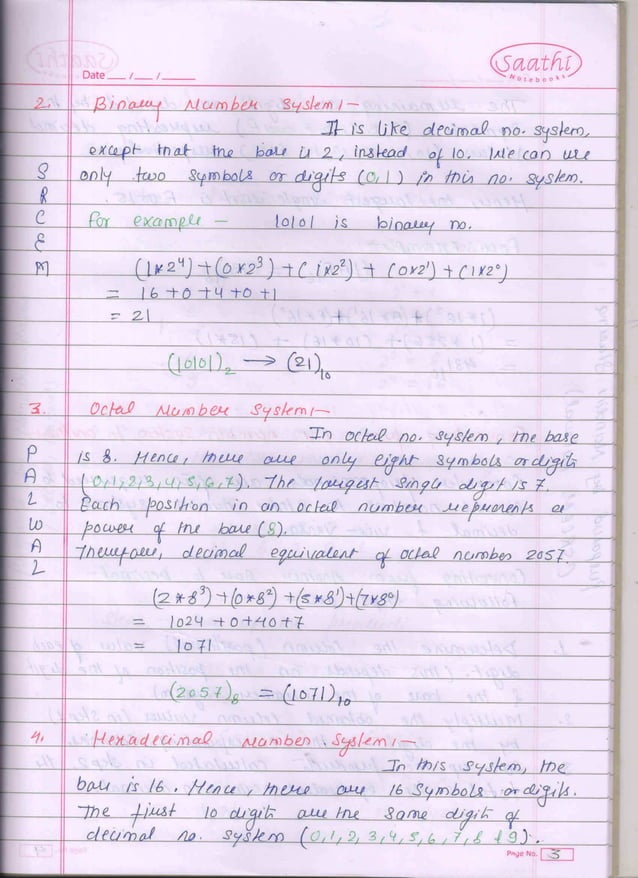 Saathi
Notebooks
Date __/__/____
2. Binary Number System :-
It is like decimal no. system,
except that the base is 2, instead of 10. We can use
only two symbols or digits (0,1) in this no. system.
For example - 10101 is binary no.
(1*2⁴)+(0*2³)+(1*2²)+(0*2¹)+(1*2⁰)
= 16+0+4+0+1
= 21
(10101)₂ → (21)₁₀
S
R
C
E
M
3. Octal Number System :-
In octal no. system, the base
is 8. Hence, there are only eight symbols or digits
(0,1,2,3,4,5,6,7). The largest single digit is 7.
Each position in an octal number represents a
power of the base (8).
Therefore, decimal equivalent of octal number 2057.
(2*8³)+(0*8²)+(5*8¹)+(7*8⁰)
= 1024 +0+40+7
= 1071
(2057)₈ = (1071)₁₀
P
A
L
W
A
L
4. Hexadecimal Number System :-
In this system, the
base is 16. Hence, there are 16 symbols or digits.
The first 10 digits are the same digits of
decimal no. system (0,1,2,3,4,5,6,7,8 & 9).
Page No. 3